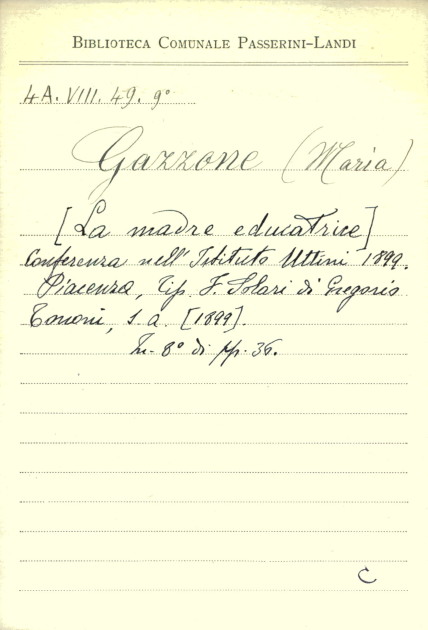 BIBLIOTECA COMUNALE PASSERINI-LANDI
4A. VIII. 49. 9°
Gazzone (Maria)
[La madre educatrice]
Conferenza nell'Istituto Uttini 1899.
Piacenza, Tip. F. Solari di Gregorio
Tononi, s. a. [1899].
In-8° di pp. 36.
C